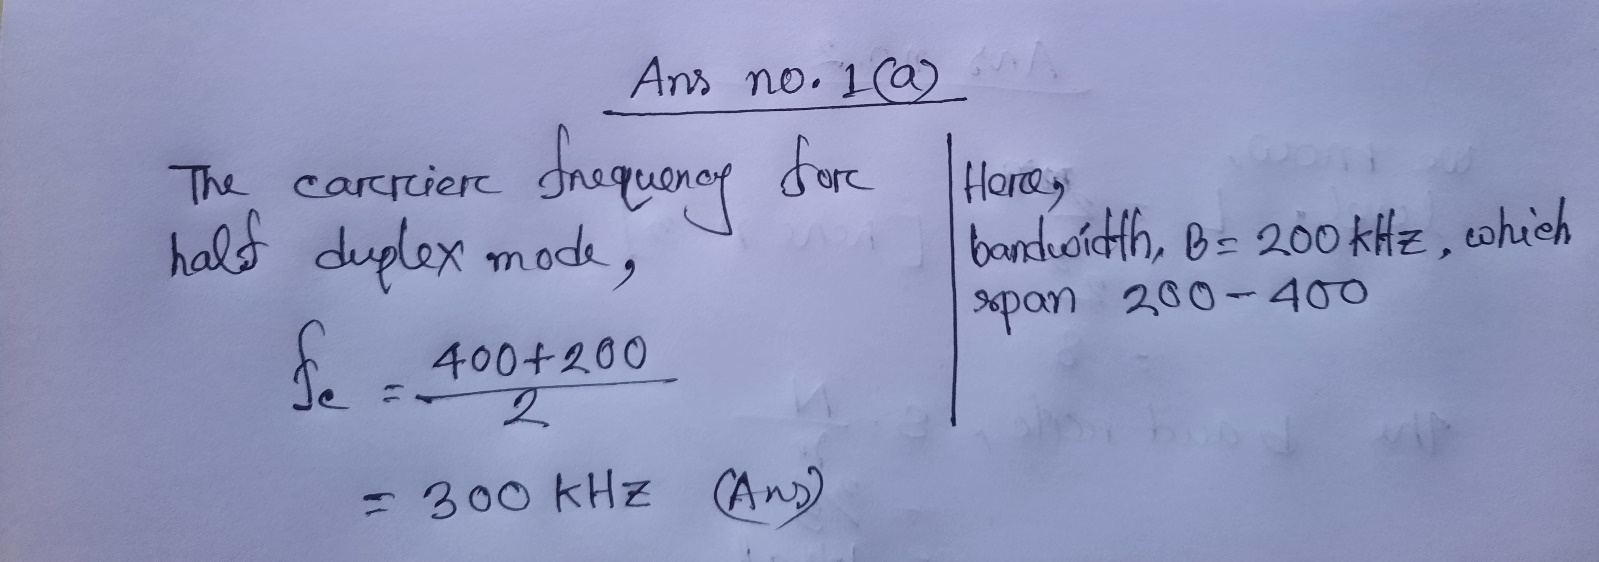 Ans no. 1(a)
The carrier frequency for
half duplex mode,
fc = 400+200
2
= 300 kHz (Ans)
Here,
bandwidth, B = 200 kHz, which
span 200 - 400